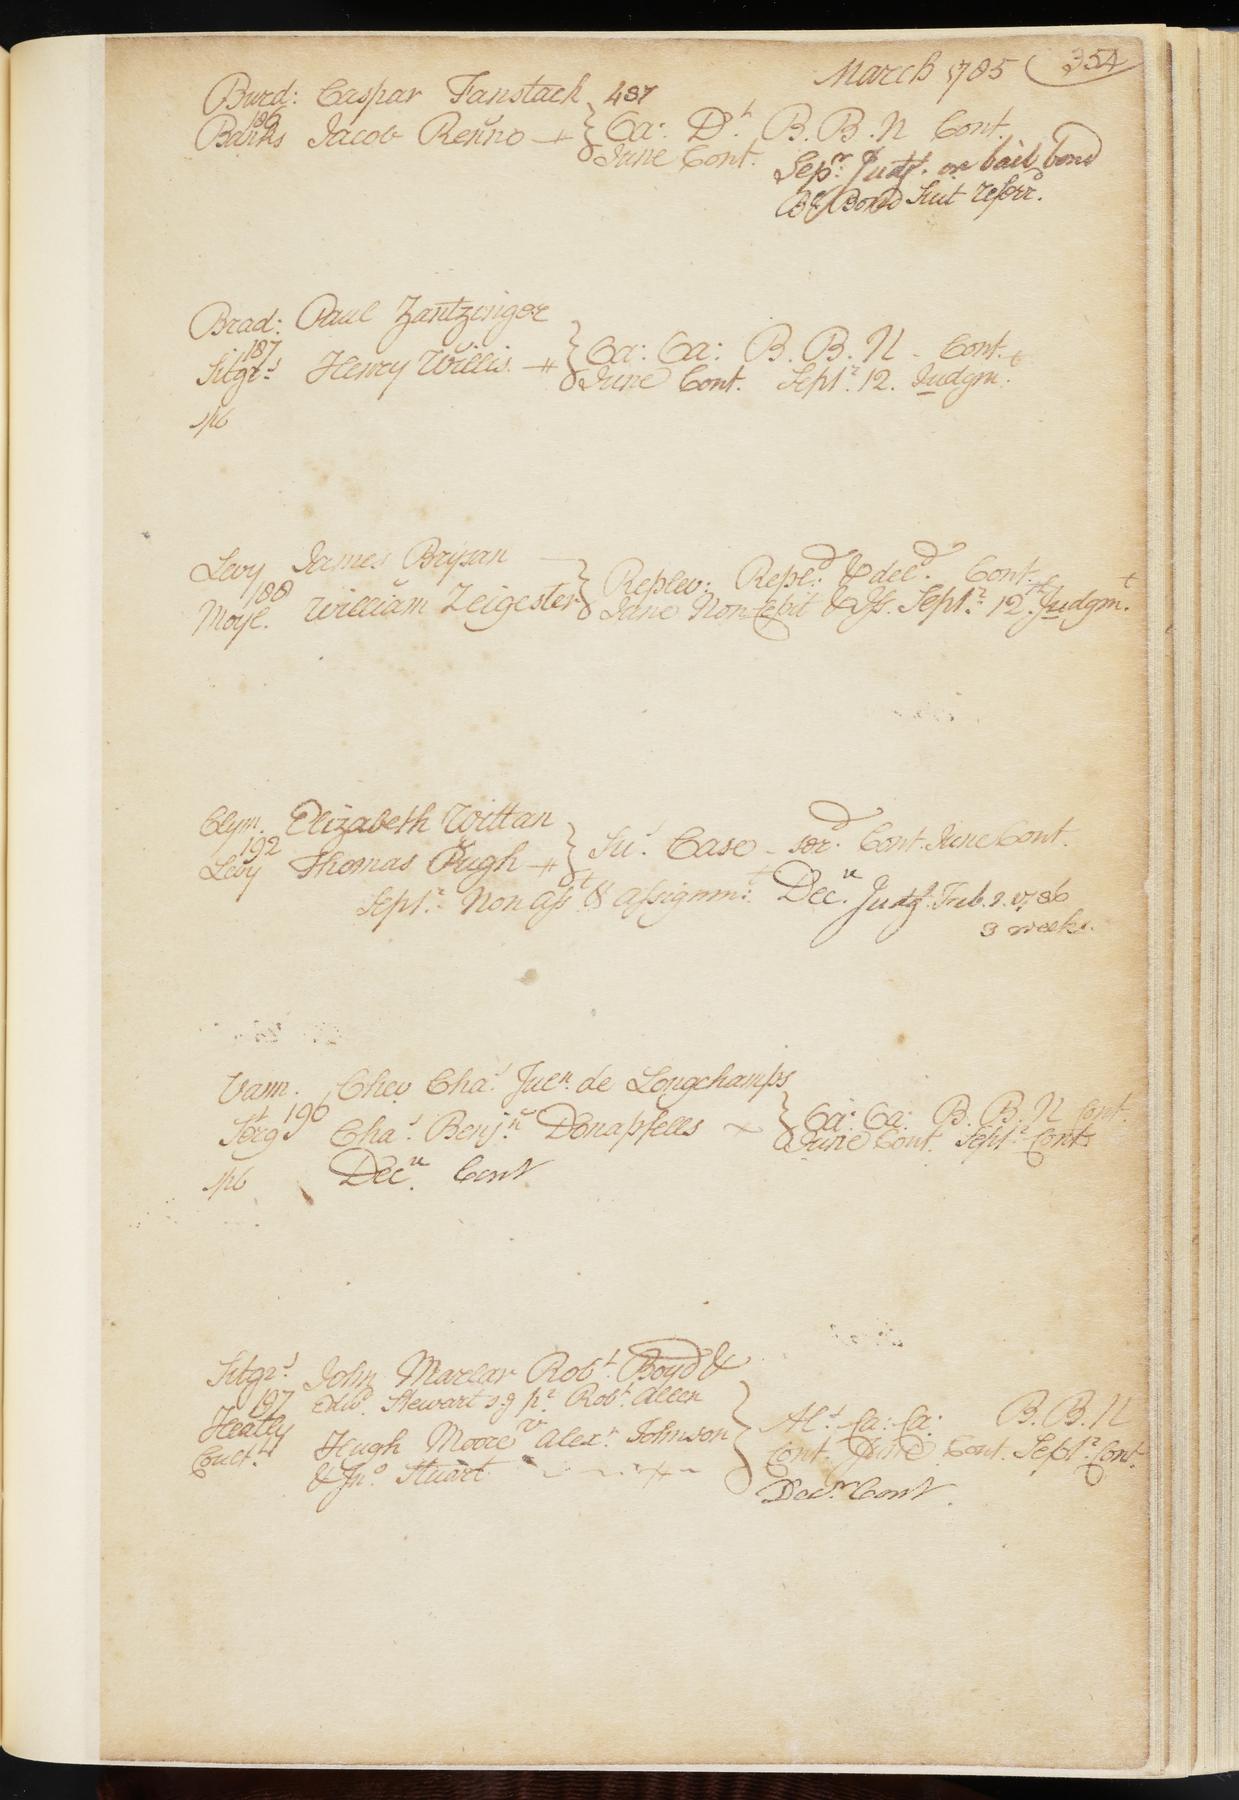 March 1785 354
Burd: Caspar Fanstack 487
186
Banks Jacob Renno Ca: Dt. B. B. N Cont.
June Cont. Sepr. Judgt. on bail bond
Bond Suit referrd.
Brad: Paul Zantzinger
187
Sitgrs. Henry Willis Ca: Ca: B. B. N - Cont.
June Cont. Septr. 12. Judgmt.
Levy James Brysan
188
Moyl. William Zeigester Replev: Repld. & decd. Cont.
June Non Cepit & Iss. Septr. 12th. Judgmt.
Clym. Elizabeth Wittan
192
Levy Thomas Pugh Sus. Case - serd. Cont. June Cont.
Septr. Non Asst. & assignmt: Decr. Judgt. Feb. 2. 1786
3 weeks.
Vann. Chev Chas. Juln. de Longchamps
196
Serg Chas. Benjn. Donapfells Ca: Ca: B. B. N Cont.
June Cont. Septr. Cont
Decr. Cont
Sitgrs. John Marlar Robt. Boyd &
197 Edwd. Stewart s.g pr. Robt. Allen
Heatly Hugh Moore v Alexr. Johnson Als. Ca: Ca: B. B. N
Couct. & Jno. Stuart Cont. June Cont. Septr. Cont.
Decr. Cont.